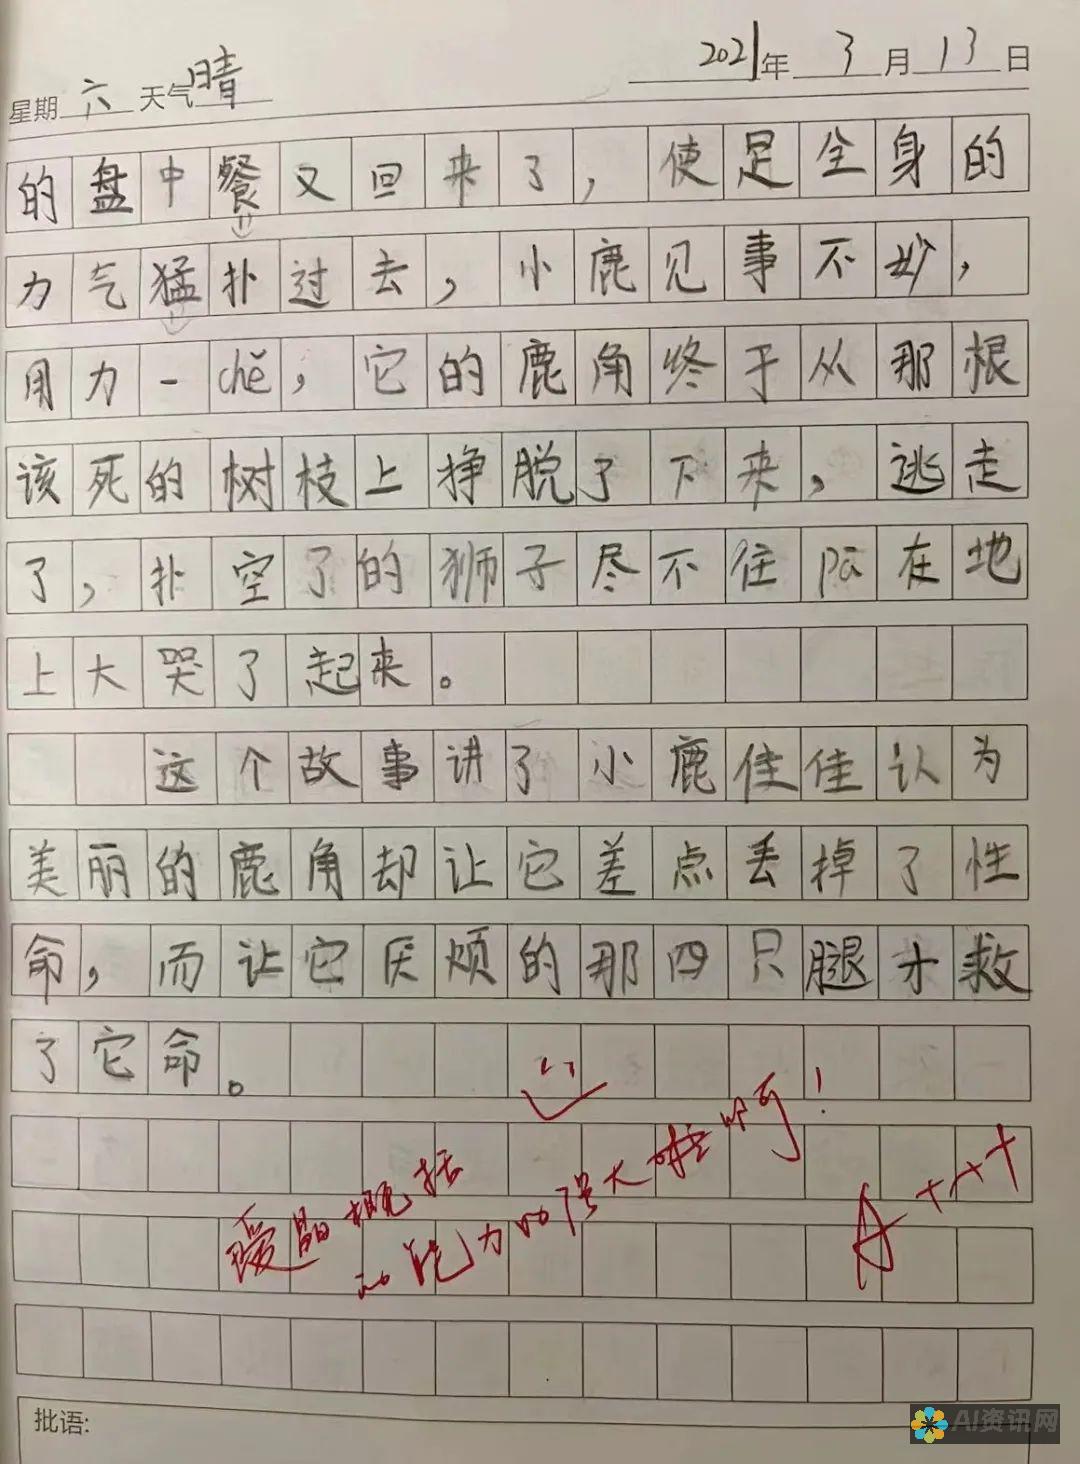 2021年3月13日
星期六 天气晴
的盘中餐又回来了，使足全身的
力气猛扑过去，小鹿见事不妙，
用力一chě，它的鹿角终于从那根
该死的树枝上挣脱了下来，逃走
了，扑空了的狮子尽不住pā在地
上大哭了起来。
这个故事讲了小鹿佳佳认为
美丽的鹿角却让它差点丢掉了性
命，而让它厌烦的那四只腿才救
了它命。
概括
能力 强大 啊！
A+++
批语:
AI资讯网